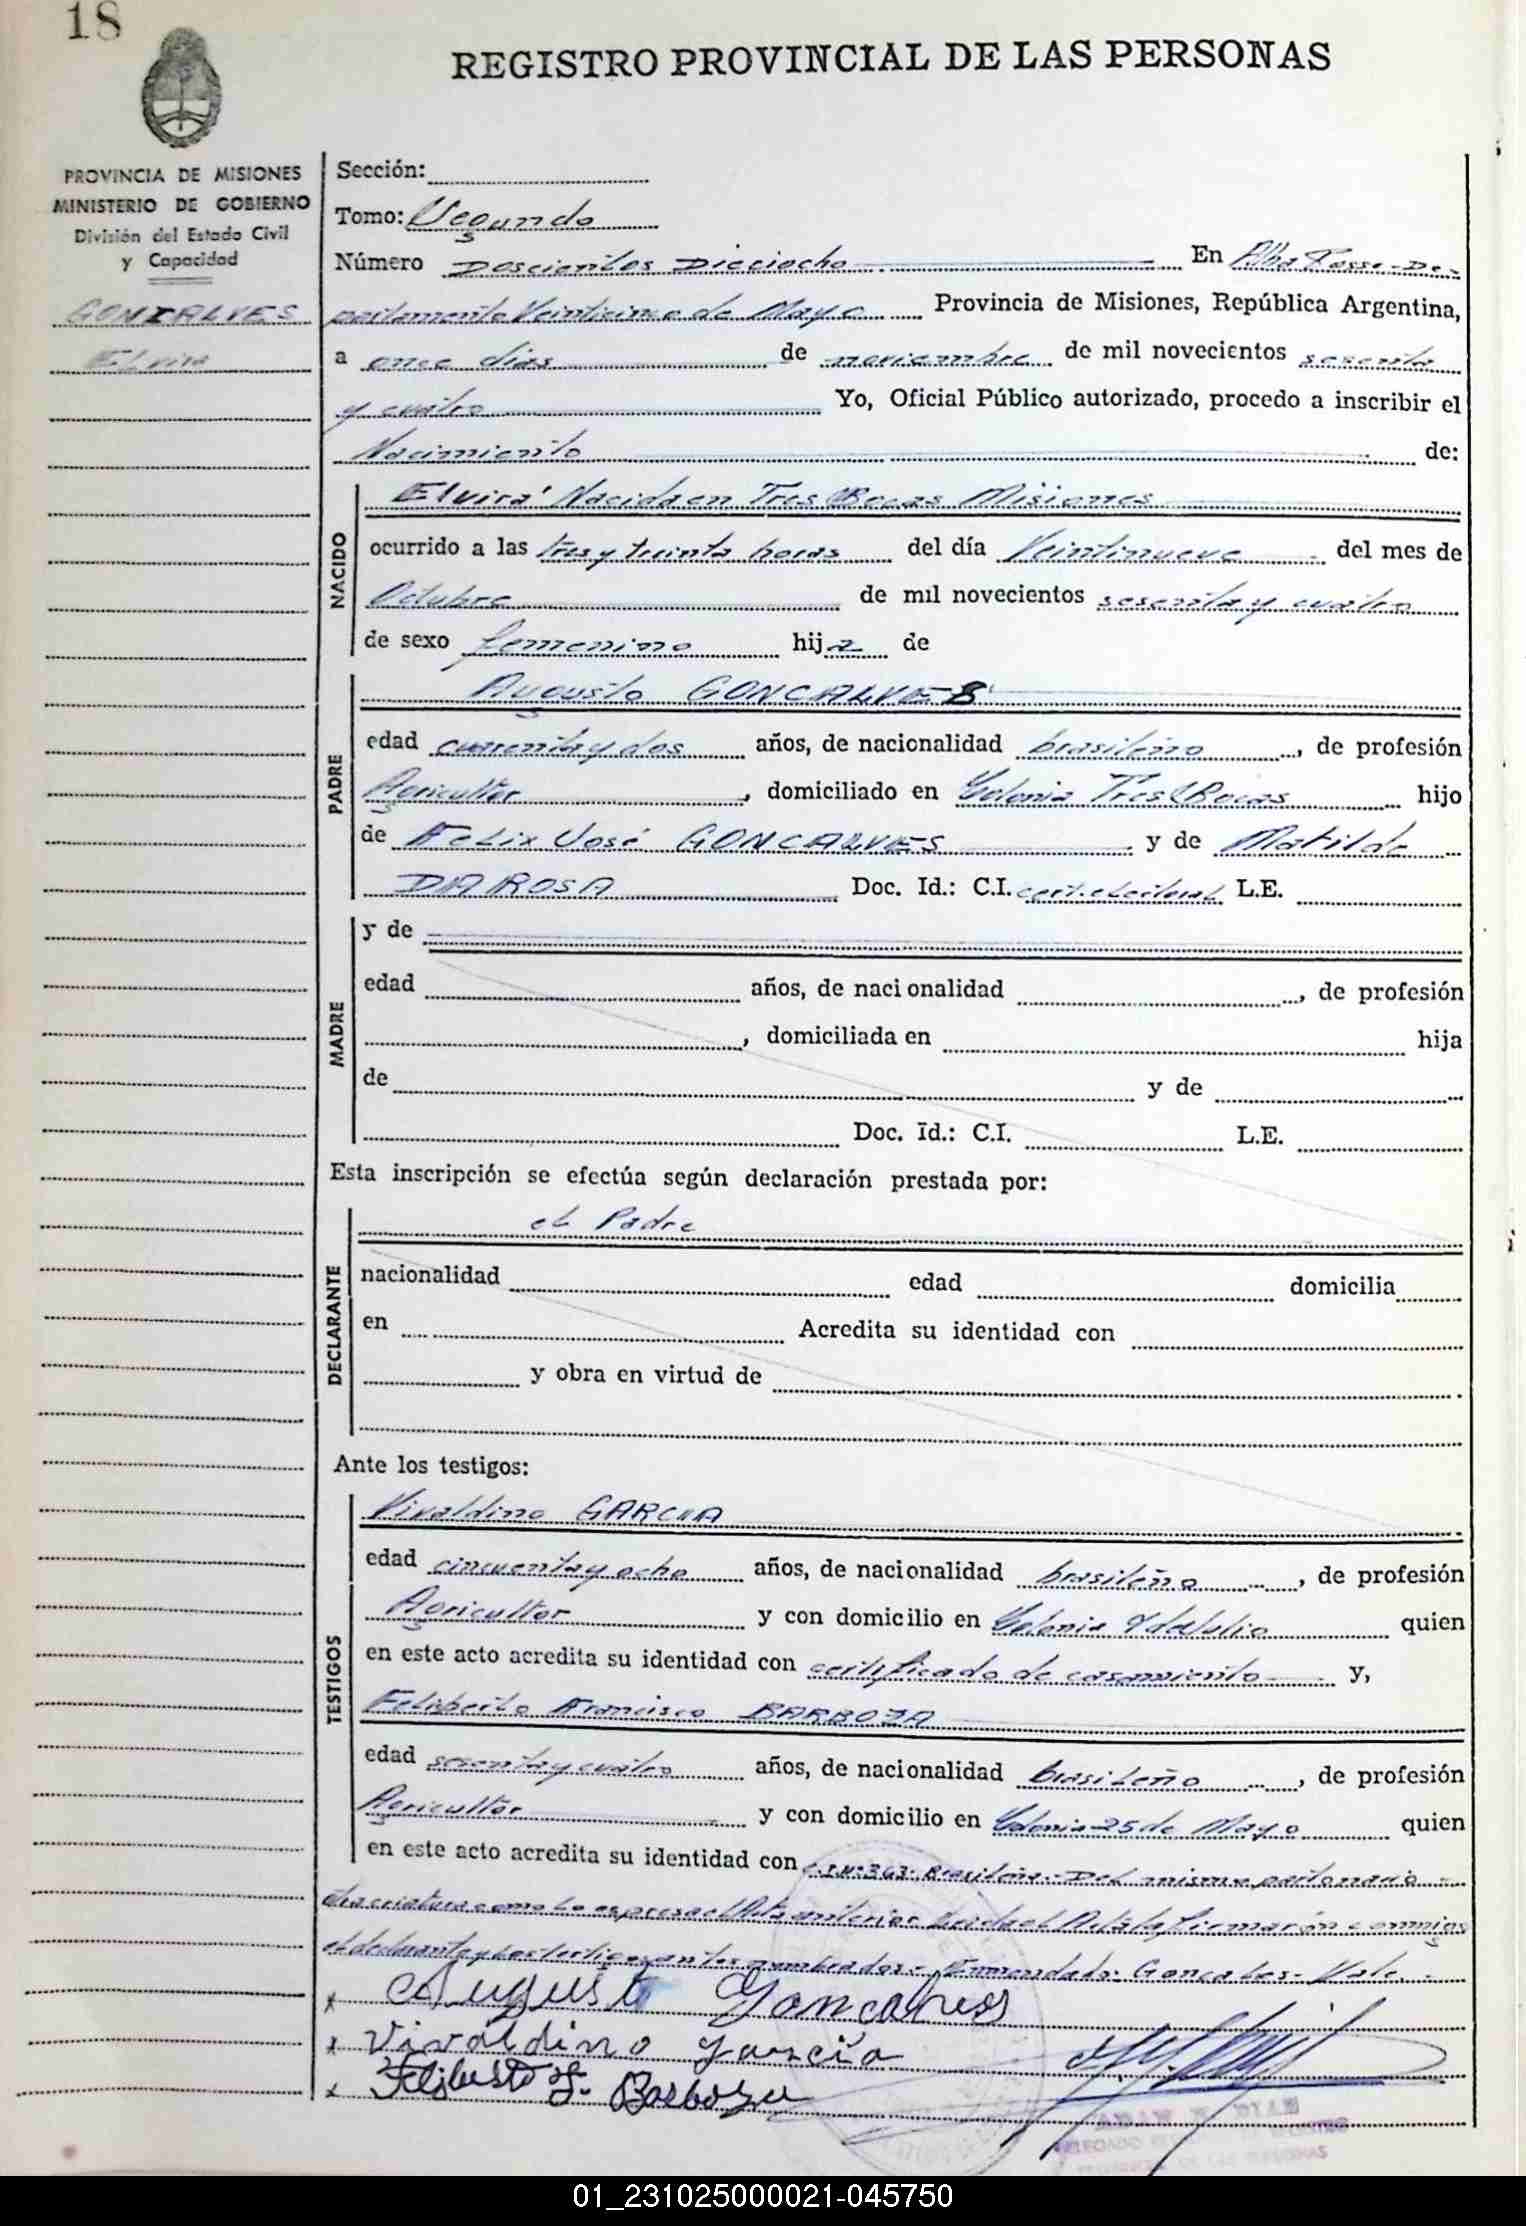 18
REGISTRO PROVINCIAL DE LAS PERSONAS
PROVINCIA DE MISIONES
MINISTERIO DE GOBIERNO
División del Estado Civil
y Capacidad
GONZALVES
Elvira
Sección:
Tomo: Segundo
Número Doscientos Dieciocho En Alba Posse-De-
partamento Veinticinco de Mayo Provincia de Misiones, República Argentina,
a once días de noviembre de mil novecientos sesenta
y cuatro Yo, Oficial Público autorizado, procedo a inscribir el
Nacimiento de:
NACIDO
Elvira Nacida en Tres Bocas Misiones
ocurrido a las tres y treinta horas del día Veintinueve del mes de
Octubre de mil novecientos sesenta y cuatro
de sexo femenino hija de
PADRE
Augusto GONCALVES
edad cuarenta y dos años, de nacionalidad brasileño, de profesión
Agricultor, domiciliado en Colonia Tres Bocas hijo
de Felix José GONCALVES y de Matilde
DA ROSA Doc. Id.: C.I. cert. electoral L.E.
MADRE
y de
edad años, de nacionalidad , de profesión
, domiciliada en hija
de y de
Doc. Id.: C.I. L.E.
Esta inscripción se efectúa según declaración prestada por:
DECLARANTE
el Padre
nacionalidad edad domicilia
en Acredita su identidad con
y obra en virtud de
Ante los testigos:
TESTIGOS
Vivaldino GARCIA
edad cincuenta y ocho años, de nacionalidad brasileño, de profesión
Agricultor y con domicilio en Colonia quien
en este acto acredita su identidad con certificado de casamiento y,
Feliberto Francisco BARBOZA
edad sesenta y cuatro años, de nacionalidad brasileño, de profesión
Agricultor y con domicilio en Colonia 25 de Mayo quien
en este acto acredita su identidad con C.I.Nº363- Brasileña.- Del mismo parto nació
otra criatura como lo expresa el Acta anterior Leida el Acta la firmarón conmigo
el declarante y los testigos antes nombrados.- Enmendado: Goncalves- Vale.-
x Augusto Goncalves
x Vivaldino Garcia
x Feliberto F. Barboza
01_231025000021-045750